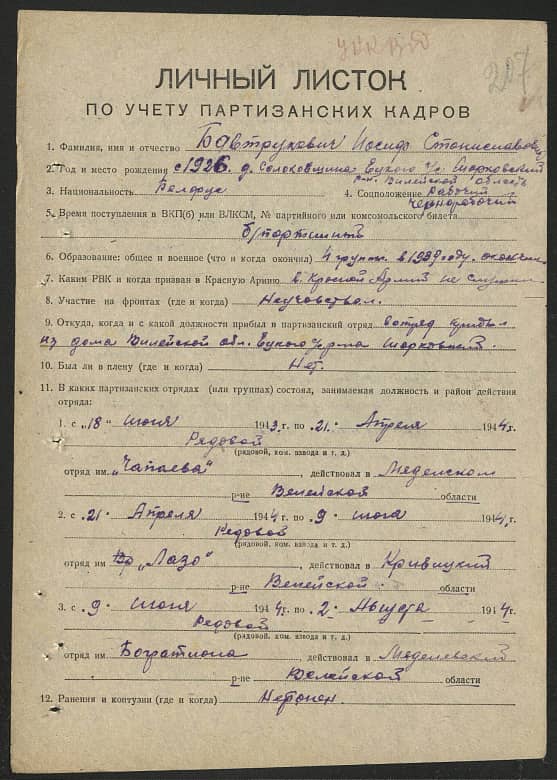 207
ЛИЧНЫЙ ЛИСТОК
ПО УЧЕТУ ПАРТИЗАНСКИХ КАДРОВ
1. Фамилия, имя и отчество Бавтрукевич Иосиф Станиславович
2. Год и место рождения с 1926 д. с/с Шарковский
р-н. Вилейской область
3. Национальность Белорус 4. Соцположение рабочий
чернорабочий
5. Время поступления в ВКП(б) или ВЛКСМ, № партийного или комсомольского билета
б/партийный
6. Образование: общее и военное (что и когда окончил) 4 групп. в 1939 году.
7. Каким РВК и когда призван в Красную Армию в. Красной Армий не служил
8. Участие на фронтах (где и когда) Неучовствол.
9. Откуда, когда и с какой должности прибыл в партизанский отряд вотряд
из дома Вилейской обл.
10. Был ли в плену (где и когда) Нет.
11. В каких партизанских отрядах (или группах) состоял, занимаемая должность и район действия
отряда:
1. с „18" июня 1943. г. по .21. Апреля 1944 г.
Рядовой
(рядовой, ком. взвода и т. д.)
отряд им. „Чапаева" действовал в Меделском
р-не Велейской области
2. с .21. Апреля 1944 г. по 9 июня 1944 г.
Редовой
(рядовой, ком. взвода и т. д.)
отряд им „Лазо" действовал в Кривицкий
р-не Велейской области
3. с 9 июня 1944 г. по 2 Августа 1944 г.
Редовой
(рядовой, ком. взвода и т. д.)
отряд им Богратиона действовал в Меделевский
р-не Велейской области
12. Ранения и контузии (где и когда) Неронен.